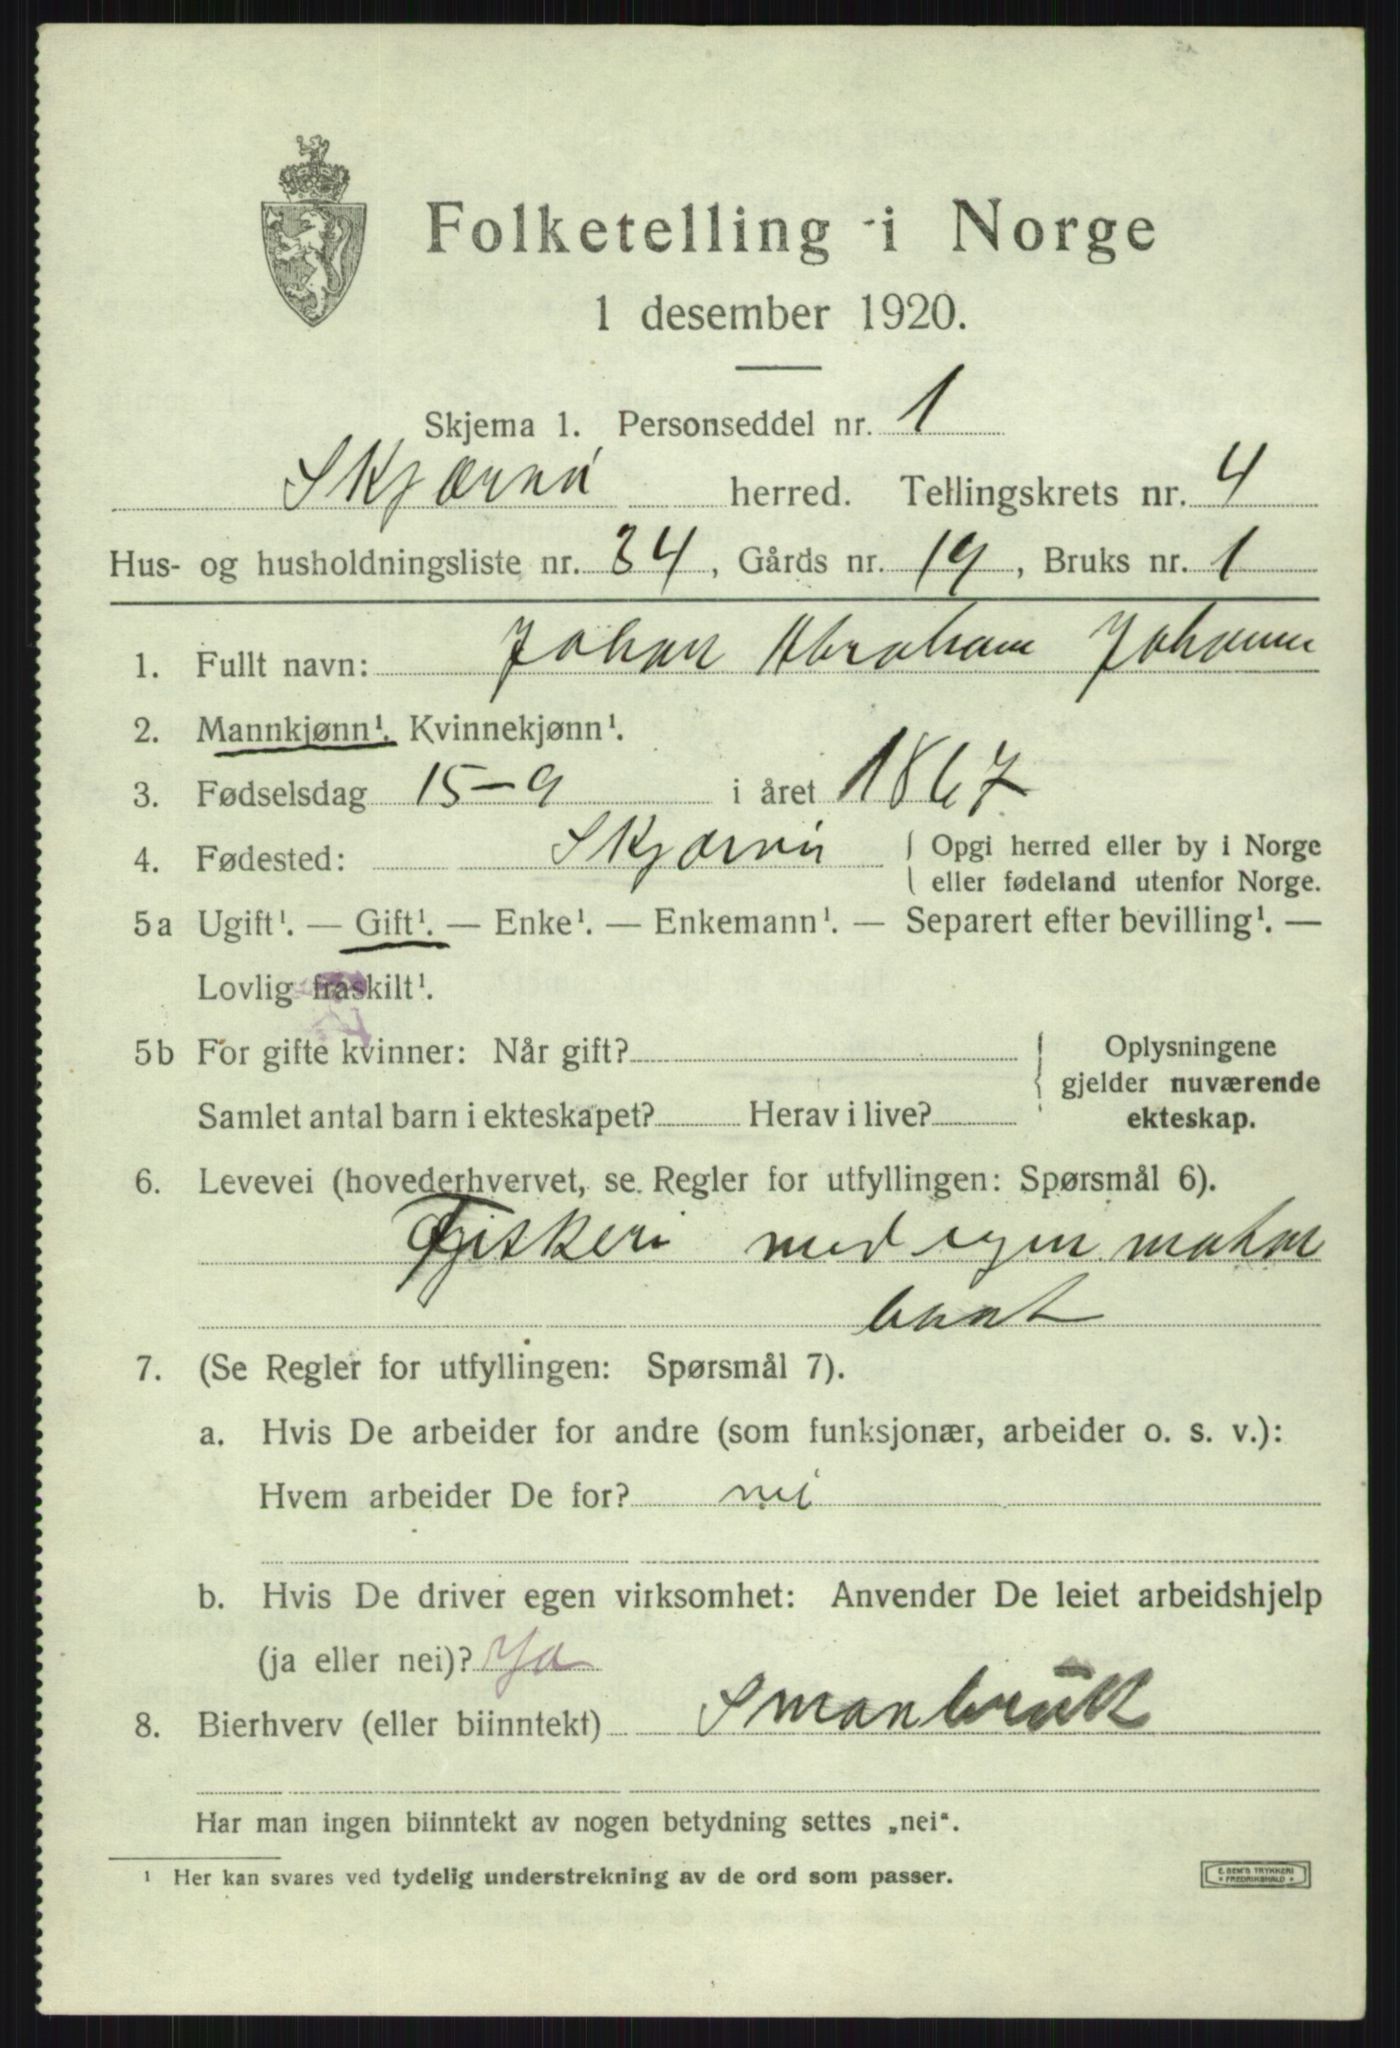 Folketelling i Norge
1 desember 1920.
Skjema 1. Personseddel nr. 1
Skjærvö herred. Tellingskrets nr. 4
Hus- og husholdningsliste nr. 34, Gårds nr. 19, Bruks nr. 1
1. Fullt navn: Johan Abraham
2. Mannkjønn¹. Kvinnekjønn¹.
3. Fødselsdag 15-9 i året 1867
4. Fødested: Skjærvö { Opgi herred eller by i Norge
eller fødeland utenfor Norge.
5a Ugift¹. — Gift¹. — Enke¹. — Enkemann¹. — Separert efter bevilling¹. —
Lovlig fraskilt¹.
5b For gifte kvinner: Når gift?
Samlet antal barn i ekteskapet? Herav i live?
Oplysningene
gjelder nuværende
ekteskap.
6. Levevei (hovederhvervet, se Regler for utfyllingen: Spørsmål 6).
Fiskeri med egen
baat
7. (Se Regler for utfyllingen: Spørsmål 7).
a. Hvis De arbeider for andre (som funksjonær, arbeider o. s. v.):
Hvem arbeider De for? nei
b. Hvis De driver egen virksomhet: Anvender De leiet arbeidshjelp
(ja eller nei)? Ja
8. Bierhverv (eller biinntekt) Smaabruk
Har man ingen biinntekt av nogen betydning settes „nei“.
¹ Her kan svares ved tydelig understrekning av de ord som passer.
E. SEM'S TRYKKERI
* FREDRIKSHALD *